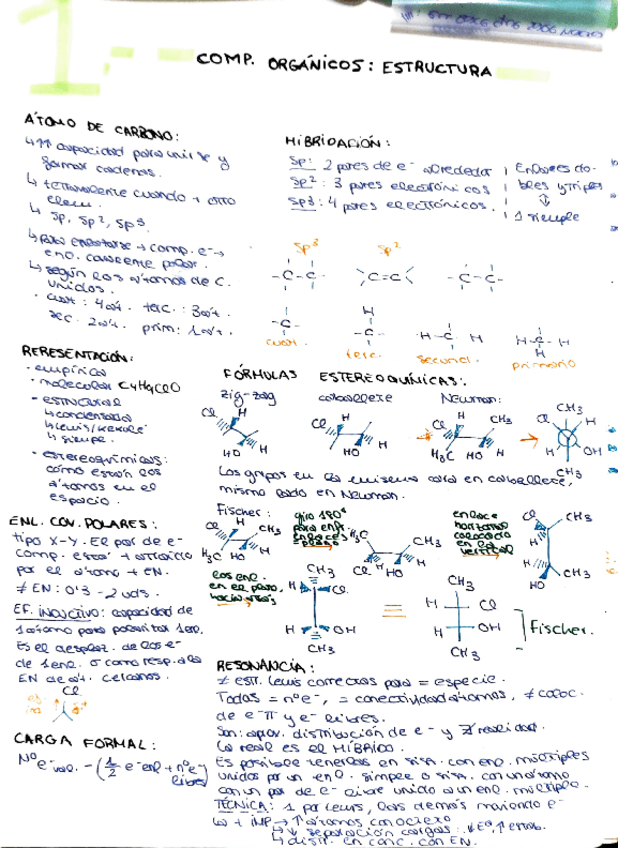 1.-
COMP. ORGÁNICOS: ESTRUCTURA
ÁTOMO DE CARBONO:
↳ ↑↑ capacidad para unirse y
formar cadenas.
↳ tetravalente cuando + otro
elem.
↳ sp, sp², sp³.
↳ para enlazarse → comp. e⁻ →
enl. covalente polar.
↳ según los átomos de C.
unidos.
· cuat: 4 át. terc.: 3 át.
sec. 2 át. prim: 1 át.
HIBRIDACIÓN:
sp: 2 pares de e⁻ alrededor
sp²: 3 pares electrónicos
sp³: 4 pares electrónicos.
Enlaces do-
bles y triples
⇓
1 simple
sp³ sp²
-C-C- >C=C< -C-C-
-C- -C-C- H-C- H H-C-H
cuat. terc. secund. primario
REPRESENTACIÓN:
· empírica
· molecular C4H9ClO
· estructural
↳ condensada
↳ Lewis/Kekulé
↳ simple.
· estereoquímicas:
cómo están los
átomos en el
espacio.
FÓRMULAS ESTEREOQUÍMICAS:
zig-zag caballete Newman:
Cl H HO H
Cl H HO H
Cl H CH3 H3C HO H
CH3 Cl H H OH CH3
Los grupos en la misma cara en caballete,
mismo lado en Newman.
Fischer:
Cl H CH3 H3C HO H
giro 180°
para enfr.
enlaces
plano
H3C H CH3 Cl HO H
enlace
horizontal
colocado
en la
vertical
Cl CH3 H H HO CH3
los enl.
en el plano,
hacia atrás
CH3 H Cl H OH CH3
=
CH3 H Cl H OH CH3
Fischer.
ENL. COV. POLARES:
tipo X-Y. El par de e⁻
comp. estará + atraído
por el átomo + EN.
≠ EN: 0'3 - 2 uds.
EF. INDUCTIVO: capacidad de
1 átomo para polarizar 1 enl.
Es el desplaz. de los e⁻
de 1 enl. σ como resp. a la
EN de át. cercanos.
Cl
CARGA FORMAL:
Nº e⁻ val. - (1/2 e⁻ enl + nº e⁻ libres)
RESONANCIA:
≠ estr. Lewis correctas para = especie.
Todas = nº e⁻, = conectividad átomos, ≠ coloc.
de e⁻ π y e⁻ libres.
Son: aprox. distribución de e⁻ y ∄ realidad.
La real es el HÍBRIDO.
Es posible tenerlas en sist. con enl. múltiples
unidos por un enl. simple o sist. con un átomo
con un par de e⁻ libre unido a un enl. múltiple.
TÉCNICA: 1 por Lewis, las demás moviendo e⁻
↳ + IMP → ↑ átomos con octeto
↳ ↓ separación cargas: ↓E, ↑ estab.
↳ distr. en conc. con EN.